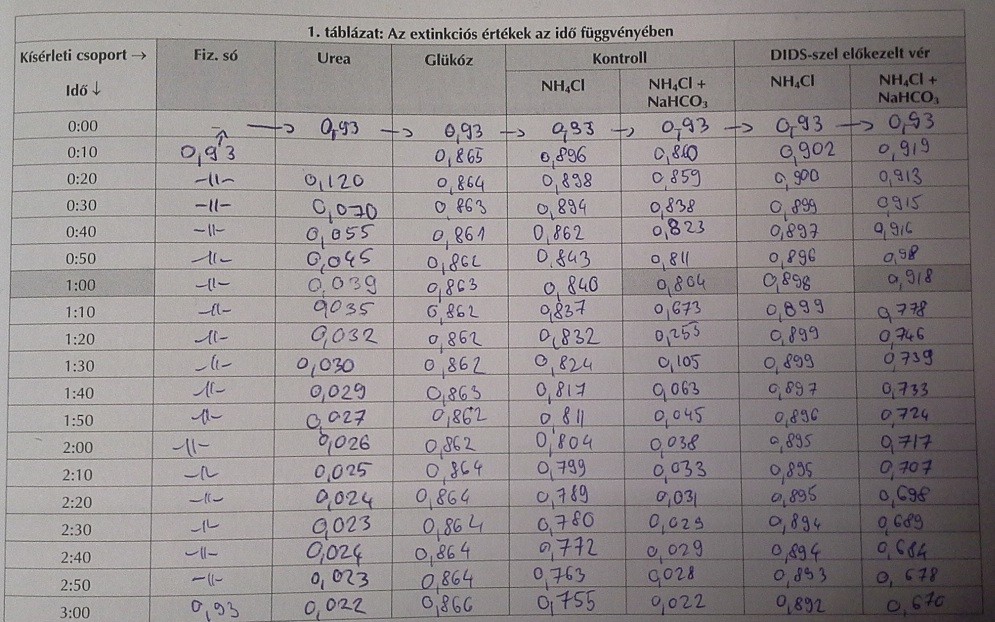 1. táblázat: Az extinkciós értékek az idő függvényében
Kísérleti csoport → Fiz. só Urea Glükóz Kontroll DIDS-szel előkezelt vér
Idő ↓ NH₄Cl NH₄Cl + NaHCO₃ NH₄Cl NH₄Cl + NaHCO₃
0:00 - → 0,93 → 0,93 → 0,93 → 0,93 → 0,93 → 0,93
0:10 0,93 0,865 0,896 0,860 0,902 0,919
0:20 -11- 0,120 0,864 0,898 0,859 0,900 0,913
0:30 -11- 0,070 0,863 0,894 0,838 0,899 0,915
0:40 -11- 0,055 0,861 0,862 0,823 0,897 0,916
0:50 -11- 0,045 0,862 0,843 0,811 0,896 0,98
1:00 -11- 0,039 0,863 0,840 0,804 0,898 0,918
1:10 -11- 0,035 0,862 0,837 0,673 0,899 0,778
1:20 -11- 0,032 0,862 0,832 0,253 0,899 0,746
1:30 -11- 0,030 0,862 0,824 0,105 0,899 0,739
1:40 -11- 0,029 0,863 0,817 0,063 0,897 0,733
1:50 -11- 0,027 0,862 0,811 0,045 0,896 0,724
2:00 -11- 0,026 0,862 0,804 0,038 0,895 0,717
2:10 -11- 0,025 0,864 0,799 0,033 0,895 0,707
2:20 -11- 0,024 0,864 0,789 0,031 0,895 0,698
2:30 -11- 0,023 0,864 0,780 0,029 0,894 0,689
2:40 -11- 0,024 0,864 0,772 0,029 0,894 0,684
2:50 -11- 0,023 0,864 0,763 0,028 0,893 0,678
3:00 0,93 0,022 0,866 0,755 0,022 0,892 0,670